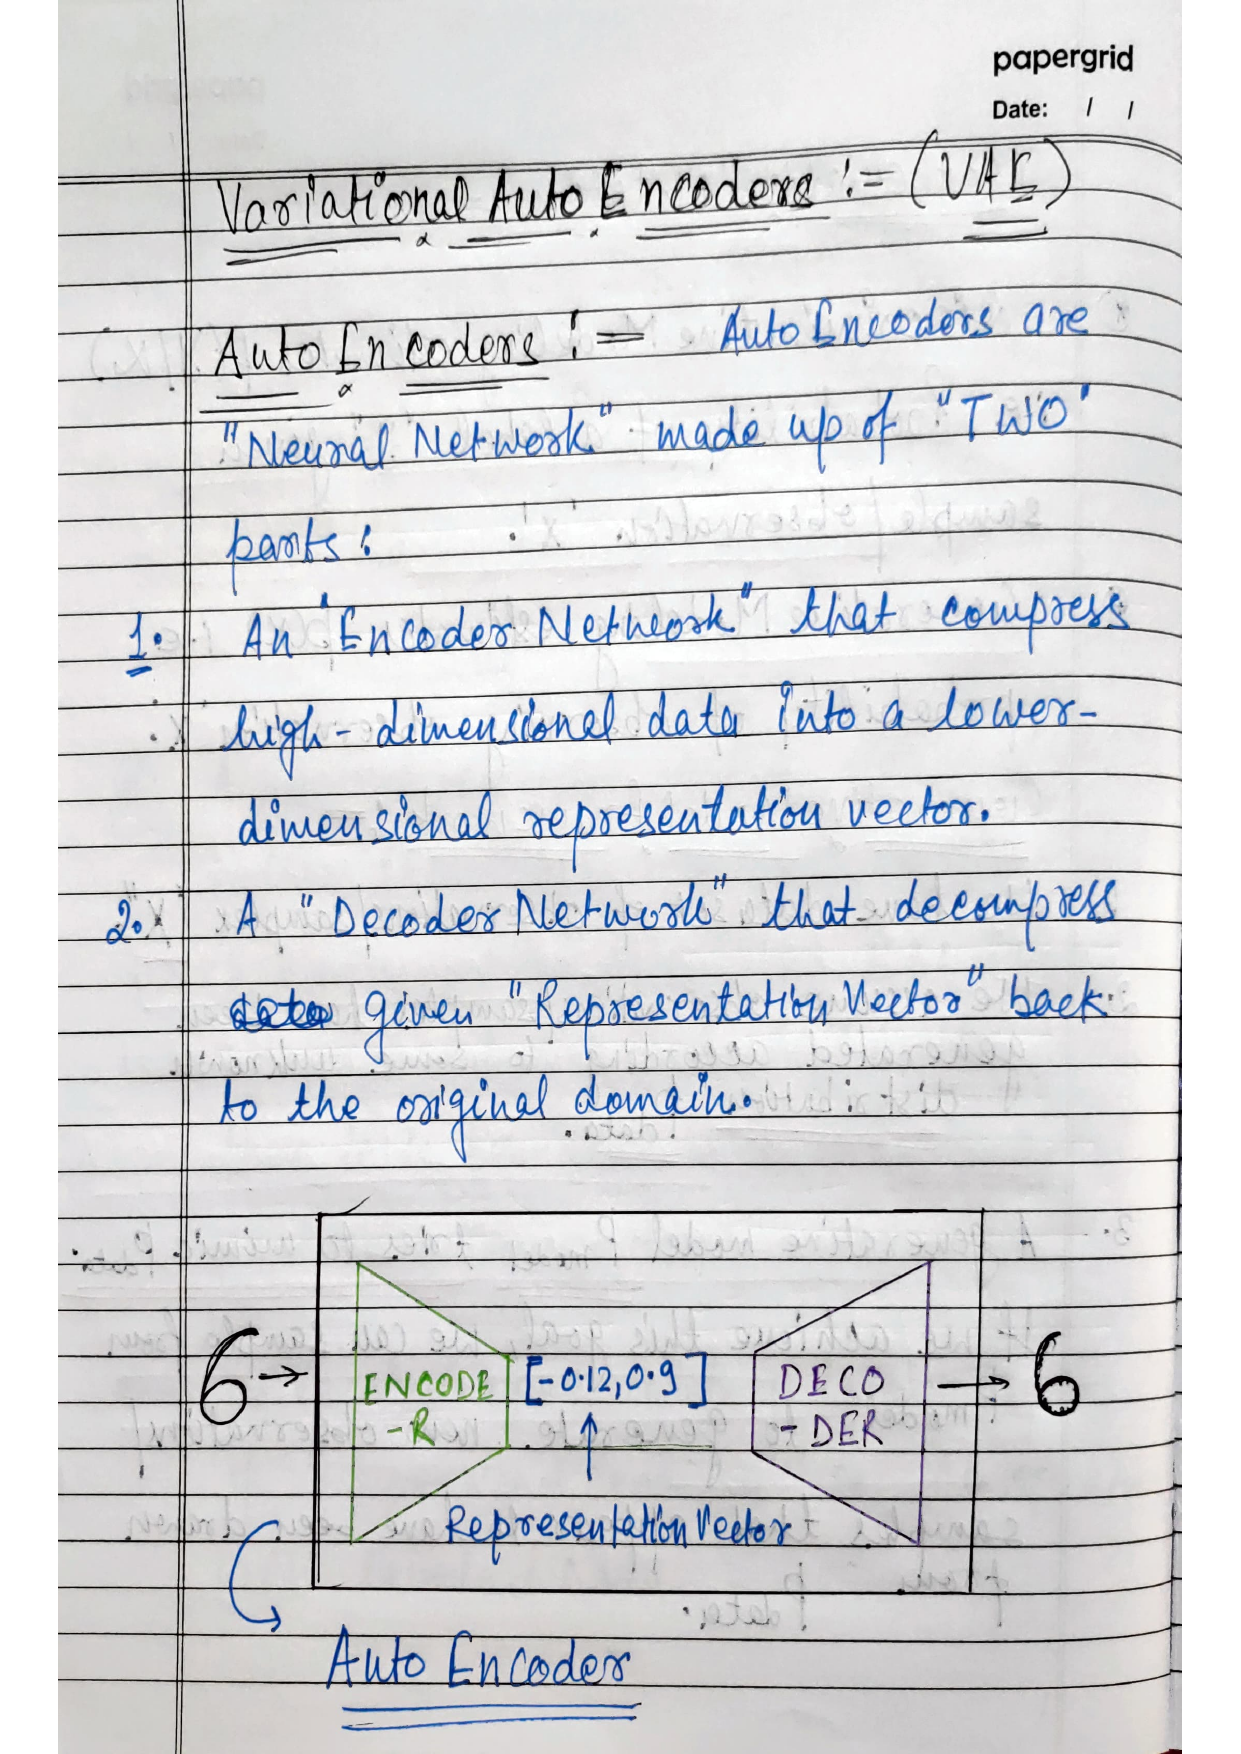 papergrid
Date: / /
Variational Auto Encoders := (VAE)
Auto Encoders := Auto Encoders are
"Neural Network" made up of "TWO"
parts:
1. An "Encoder Network" that compress
high-dimensional data into a lower-
dimensional representation vector.
2. A "Decoder Network" that decompress
given "Representation Vector" back
to the original domain.
6 → ENCODE [-0.12, 0.9] DECO → 6
-R ↑ -DER
Representation Vector
Auto Encoder